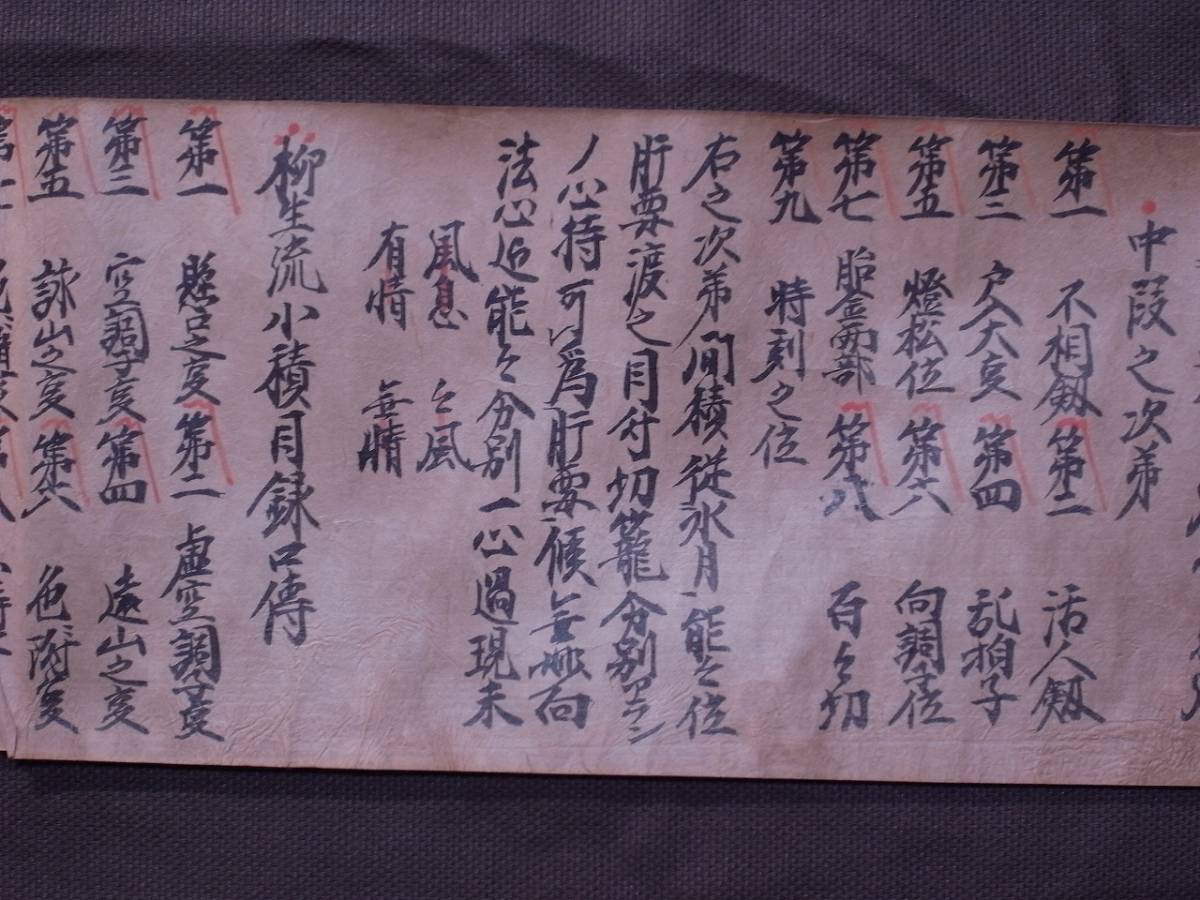 中段之次第
第一 不相剱 第二 活人剱
第三 戸入大事 第四 乱拍子
第五 燈松位 第六 向調子位
第七 胎金両部 第八 百々切
第九 特刻之位
右之次第間積従水月能々位
肝要渡之目付切籠分別アラン
ノ心持可為肝要候無
法心近能々分別一心過現未
風息 々風
有情 無情
柳生流小積目録口傳
第一 懸口之事 第二 虚空調子事
第三 空調子事 第四 遠山之事
第五 詠山之事 第六 色附事